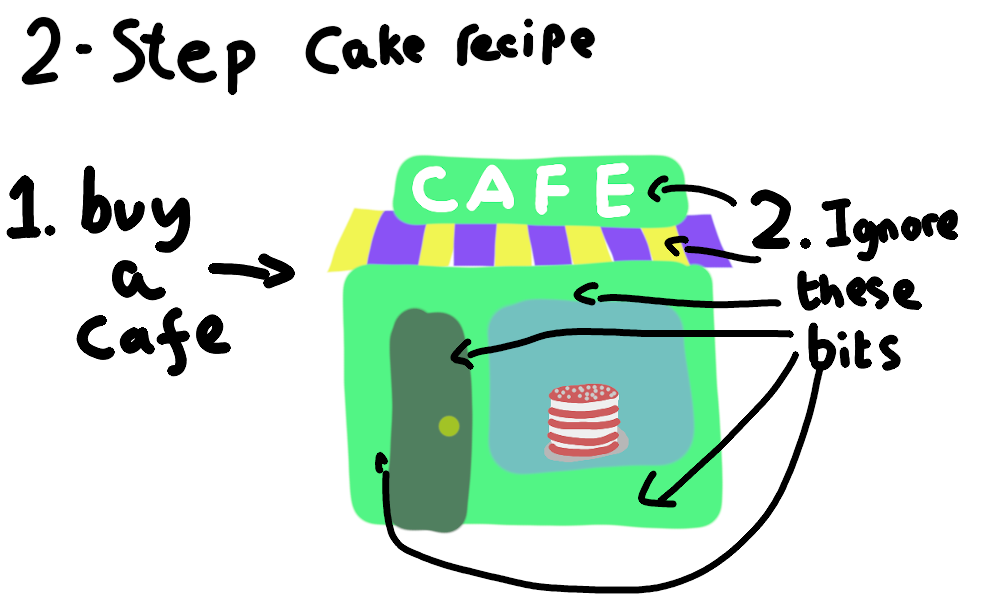 2-Step Cake recipe
CAFE
1. buy
a
cafe
2. Ignore
these
bits